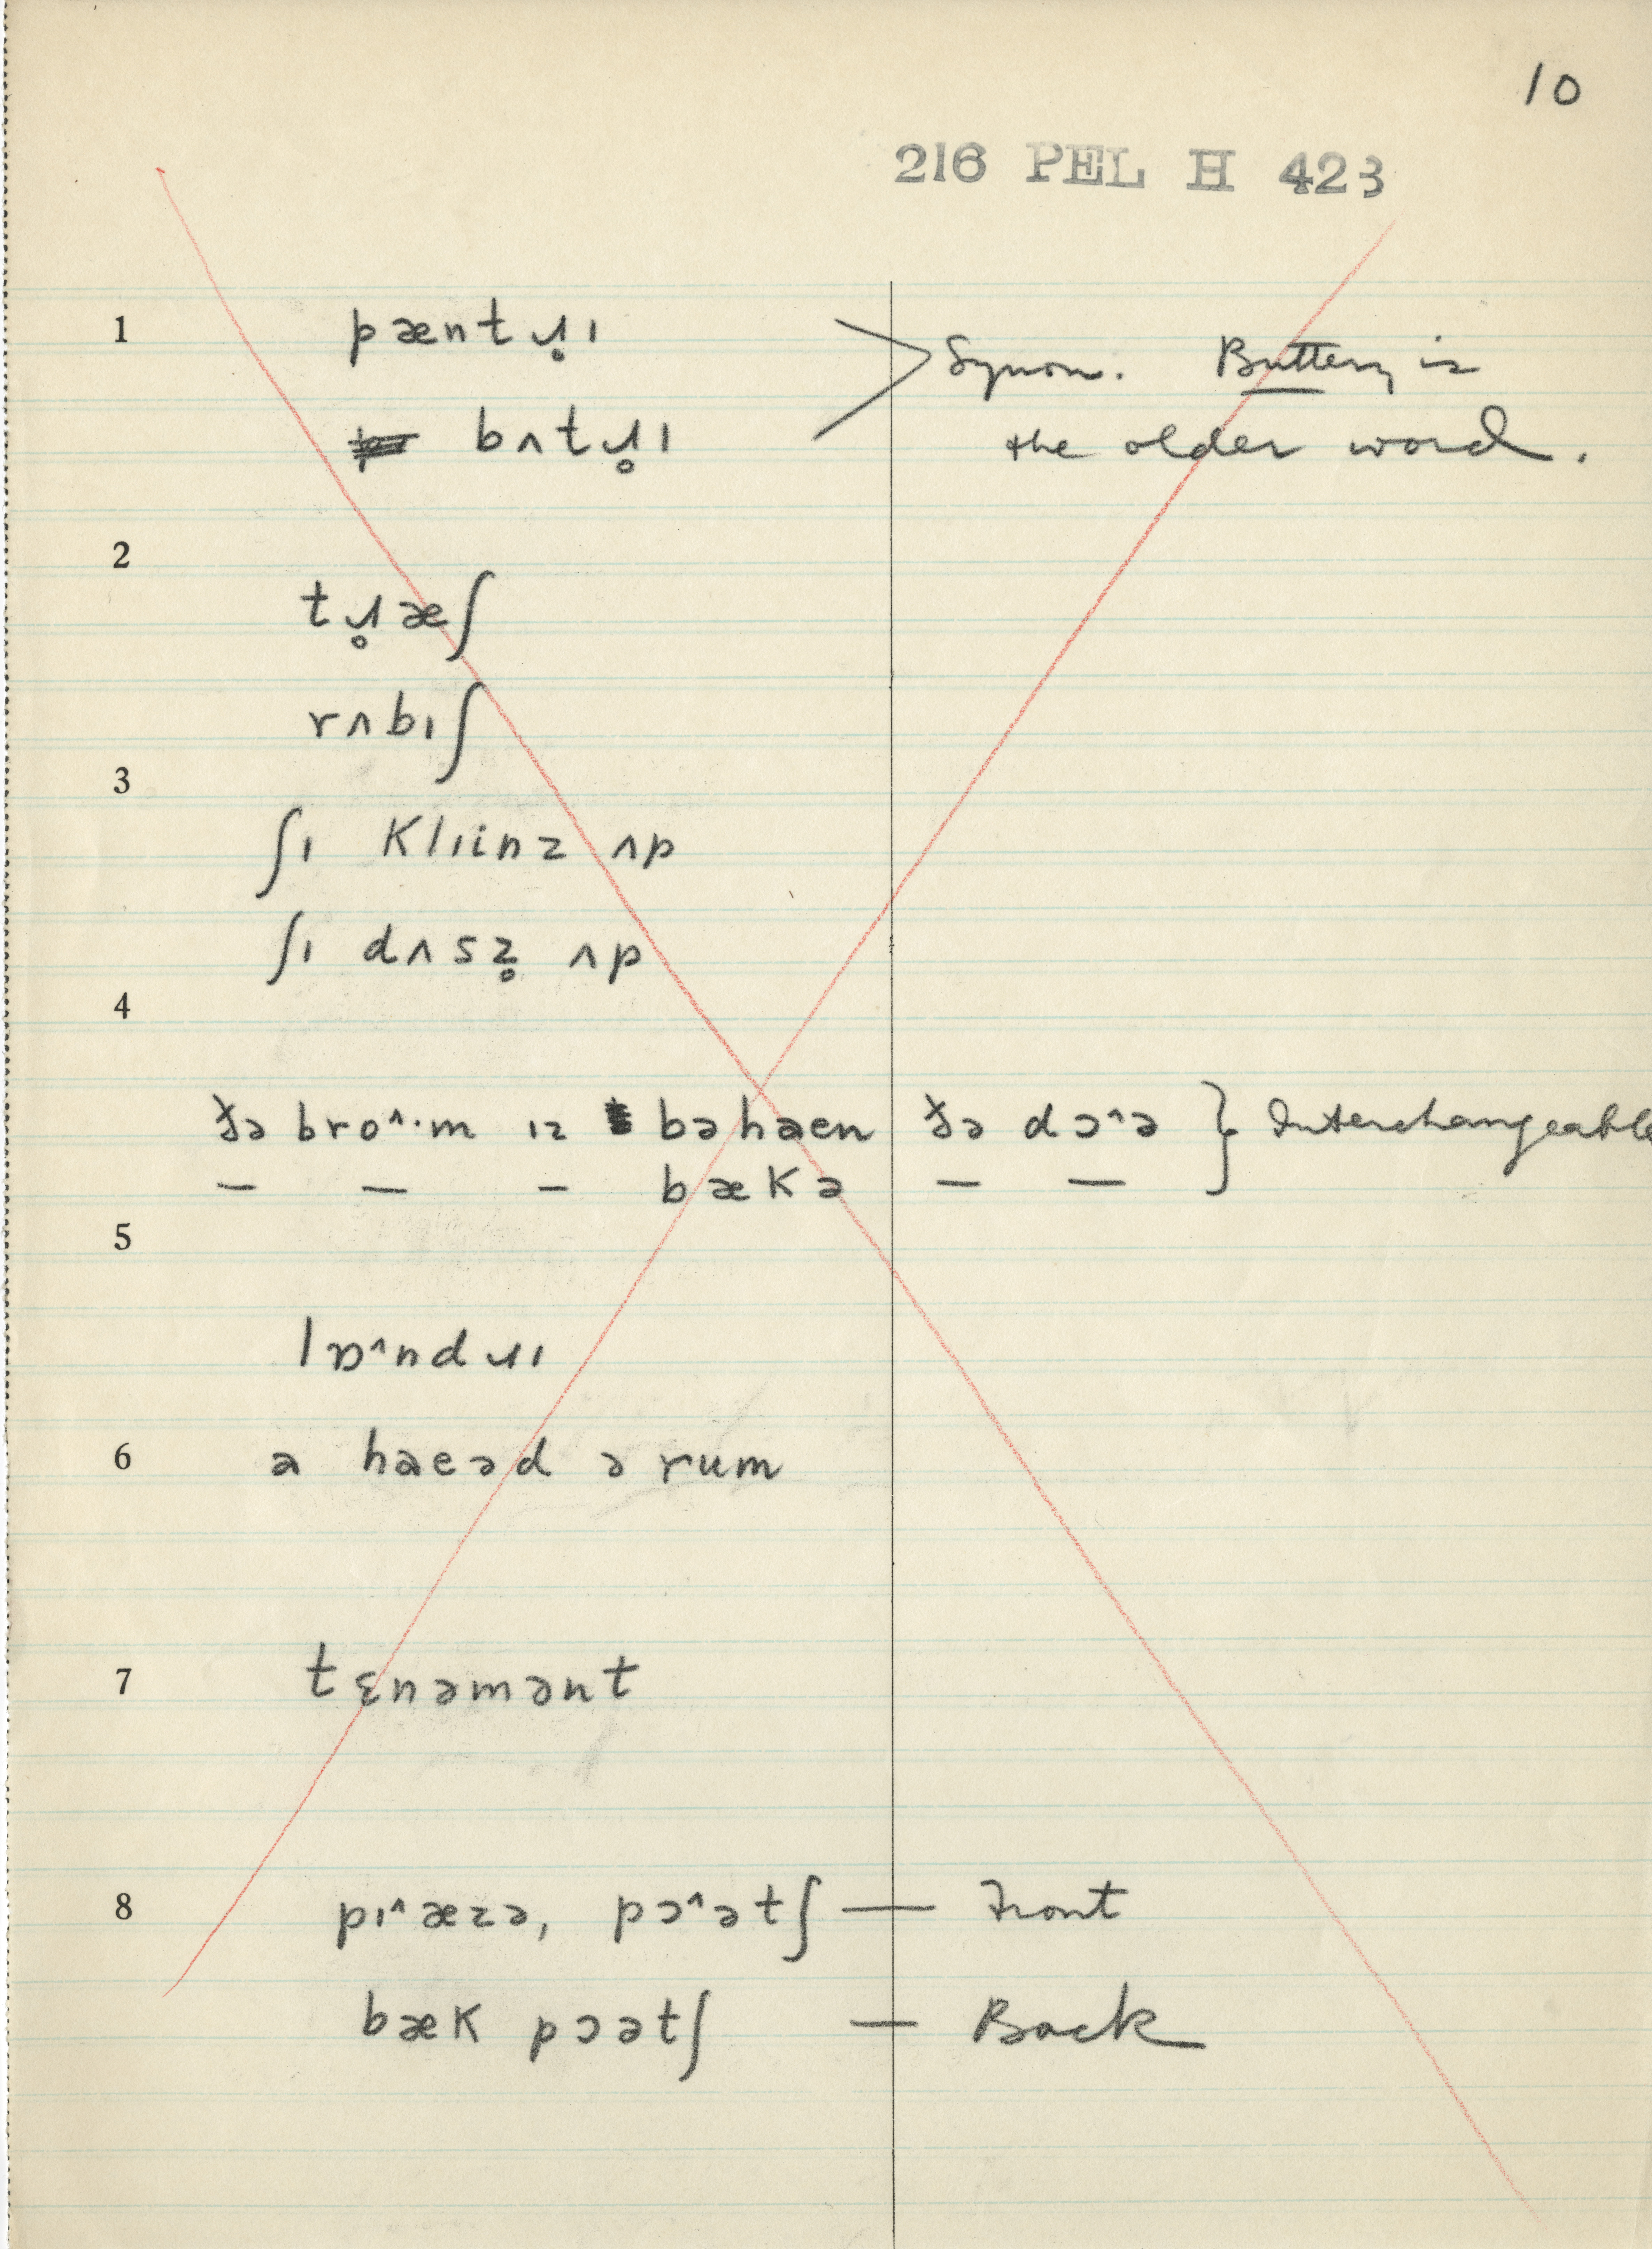 10
216 PEL H 423
1 pæntɹ̥ɪ Synon. Buttery is
bʌtɹ̥ɪ the older word.
2
tɹ̥æʃ
rʌbɪʃ
3
ʃɪ klɪinz ʌp
ʃɪ dʌsz̥ ʌp
4
ðə bro^·m ɪz bəhaen ðə dɔ^ə } Interchangeable
— — — bækə — —
5
lɒ^ndɹɪ
6 a haeəd ə rum
7 tɛnəmənt
8 pɪ^æzə, pɔ^ətʃ — Front
bæk pɔətʃ — Back